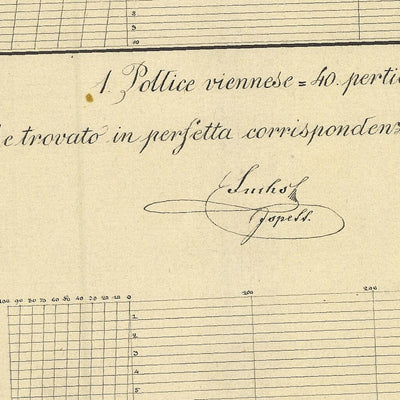 10
1. Pollice viennese = 40. perti
e trovato in perfetta corrispondenz
Suchs
Inspett.
100 90 80 70 60 50 40 30 20 10 0 100 200
1
2
3
4
5